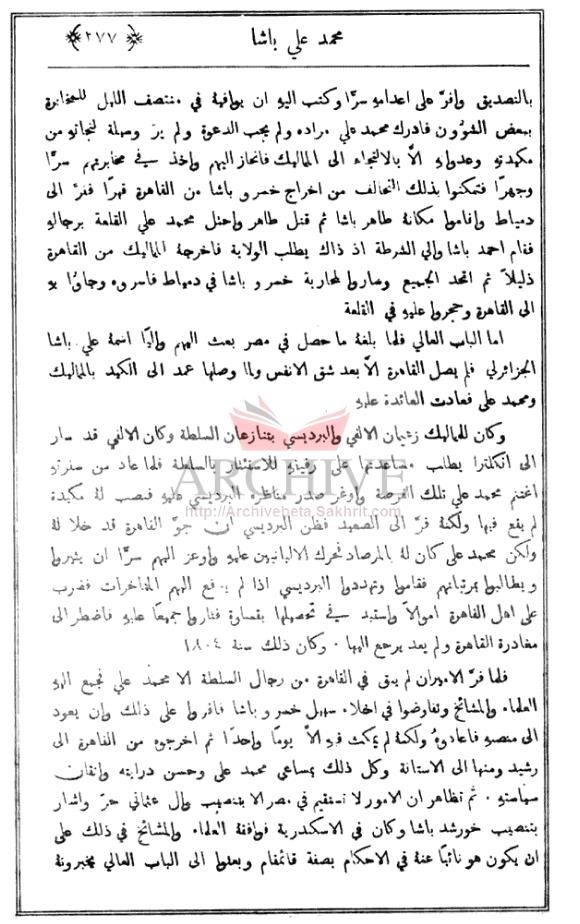 محمد علي باشا
﴿ ٢٧٧ ﴾
بالتصديق واقرَّ على اعدامهِ سرًّا وكتب اليهِ ان يوافيهُ في منتصف الليل للمخابرة
ببعض الشؤون فادرك محمد علي مراده ولم يجب الدعوة ولم يرَ وسيلة لنجاتهِ من
مكيدتهِ وعدوانهِ الَّا بالالتجاء الى المماليك فانحاز اليهم واخذ في مخابرتهم سرًّا
وجهرًا فتمكنوا بذلك التحالف من اخراج خسرو باشا من القاهرة قهرًا ففرَّ الى
دمياط واقاموا مكانهُ طاهر باشا ثم قتل طاهر واحتل محمد علي القلعة برجالهِ
فقام احمد باشا والي الشرطة اذ ذاك يطلب الولاية فاخرجهُ المماليك من القاهرة
ذليلًا ثم اتحد الجميع وساروا لمحاربة خسرو باشا في دمياط فاسروه وجاؤا بهِ
الى القاهرة وحجروا عليهِ في القلعة
اما الباب العالي فلما بلغهُ ما حصل في مصر بعث اليهم واليًا اسمهُ علي باشا
الجزائرلي فلم يصل القاهرة الَّا بعد شق الانفس ولما وصلها عمد الى الكيد بالمماليك
ومحمد علي فعادت العائدة عليهِ
وكان للمماليك زعيمان الالفي والبرديسي يتنازعان السلطة وكان الالفي قد سار
الى انكلترا يطلب مساعدتها على رفيقهِ للاستئثار بالسلطة فلما عاد من سفرتهِ
اغتنم محمد علي تلك الفرصة واوغر صدر مناظره البرديسي عليهِ فنصب لهُ مكيدة
لم يقع فيها ولكنهُ فرَّ الى الصعيد فظن البرديسي ان جوَّ القاهرة قد خلا لهُ
ولكن محمد علي كان لهُ بالمرصاد فحرك الالبانيين عليهِ واوعز اليهم سرًّا ان يثيروا
ويطالبوا بمرتباتهم فقاموا وتهددوا البرديسي اذا لم يدفع اليهم المتاخرات فضرب
على اهل القاهرة اموالًا واستبد في تحصيلها بقساوة فثاروا جميعًا عليهِ فاضطر الى
مغادرة القاهرة ولم يعد يرجع اليها . وكان ذلك سنة ١٨٠٤
فلما فرَّ الاميران لم يبق في القاهرة من رجال السلطة الا محمد علي فجمع اليهِ
العلماء والمشائخ وتفاوضوا في اخلاء سبيل خسرو باشا فاقروا على ذلك وان يعود
الى منصبهِ فاعادوهُ ولكنهُ لم يمكث فيهِ الَّا يومًا واحدًا ثم اخرجوه من القاهرة الى
رشيد ومنها الى الاستانة وكل ذلك بمساعي محمد علي وحسن درايتهِ واتقان
سياستهِ . ثم تظاهر ان الامور لا تستقيم في مصر الا بتنصيب وال عثماني حرّ واشار
بتنصيب خورشد باشا وكان في الاسكندرية فوافقهُ العلماء والمشائخ في ذلك على
ان يكون هو نائبًا عنهُ في الاحكام بصفة قائمقام وبعثوا الى الباب العالي يخبرونهُ
ARCHIVE
http://Archivebeta.Sakhrit.com